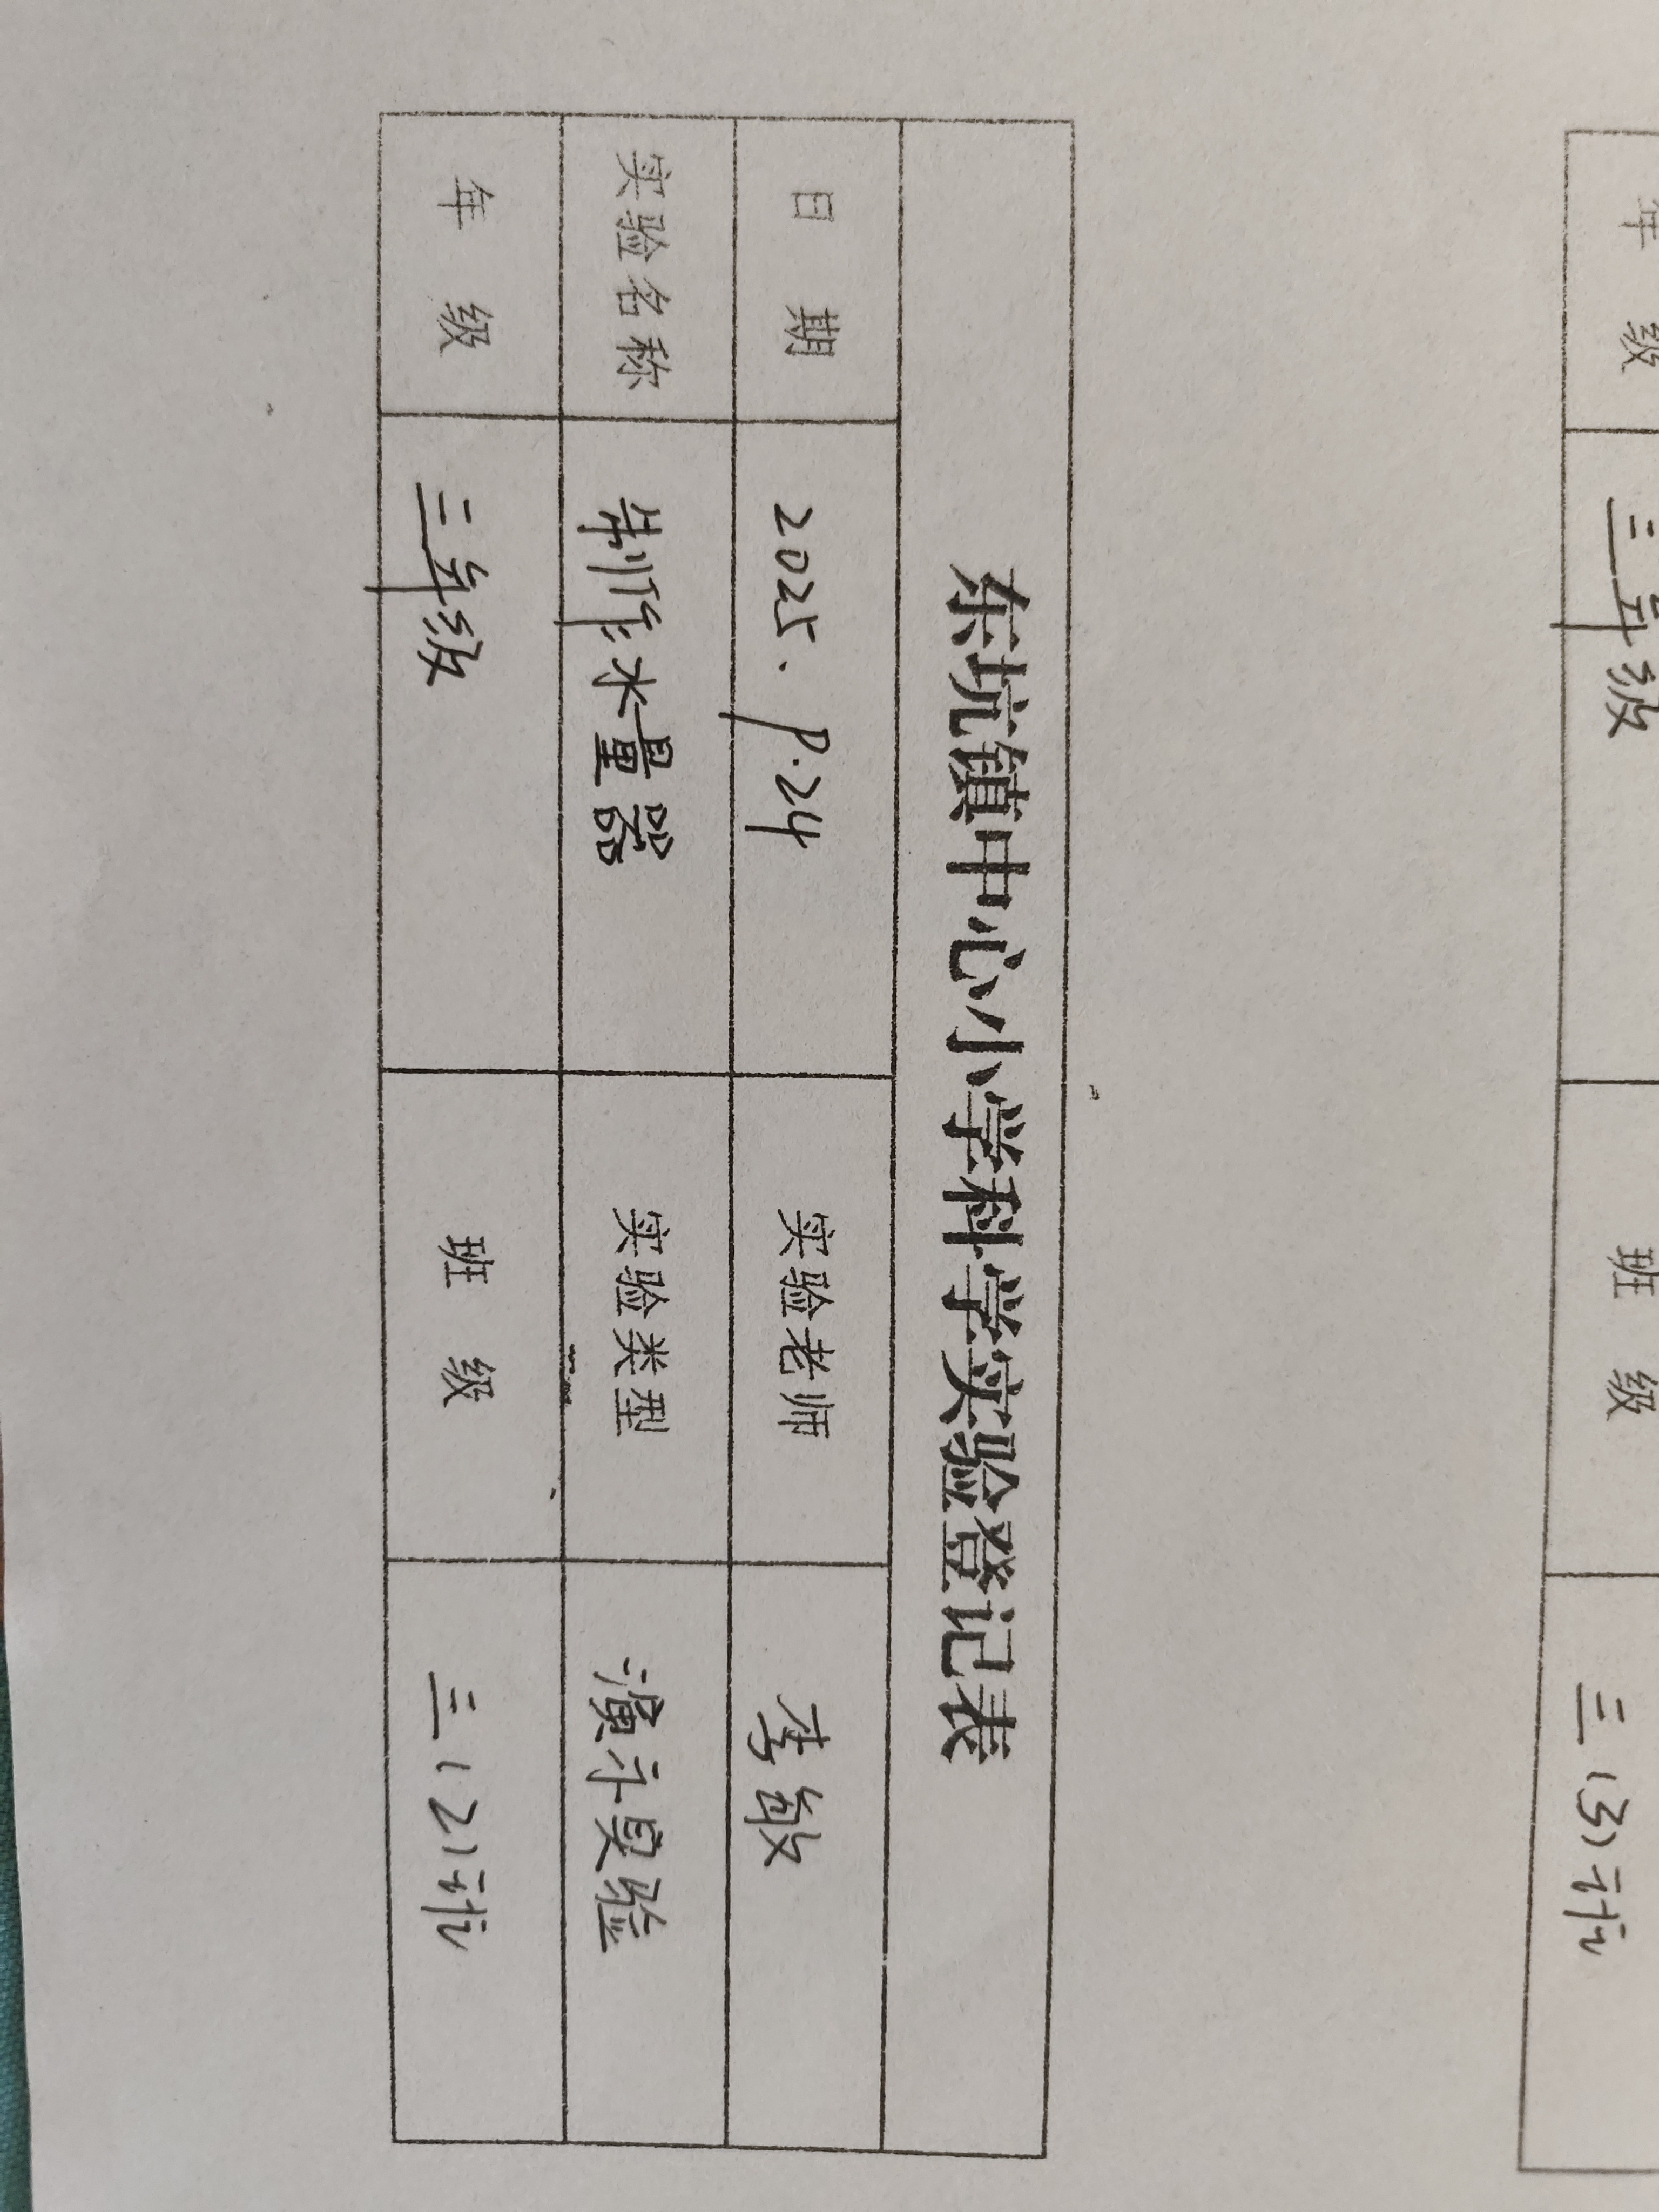 年 级 三年级 班 级 三(3)班
东坑镇中心小学科学实验登记表
日 期 2025.9.24 实验老师 李敏
实验名称 制作水量器 实验类型 演示实验
年 级 三年级 班 级 三(2)班